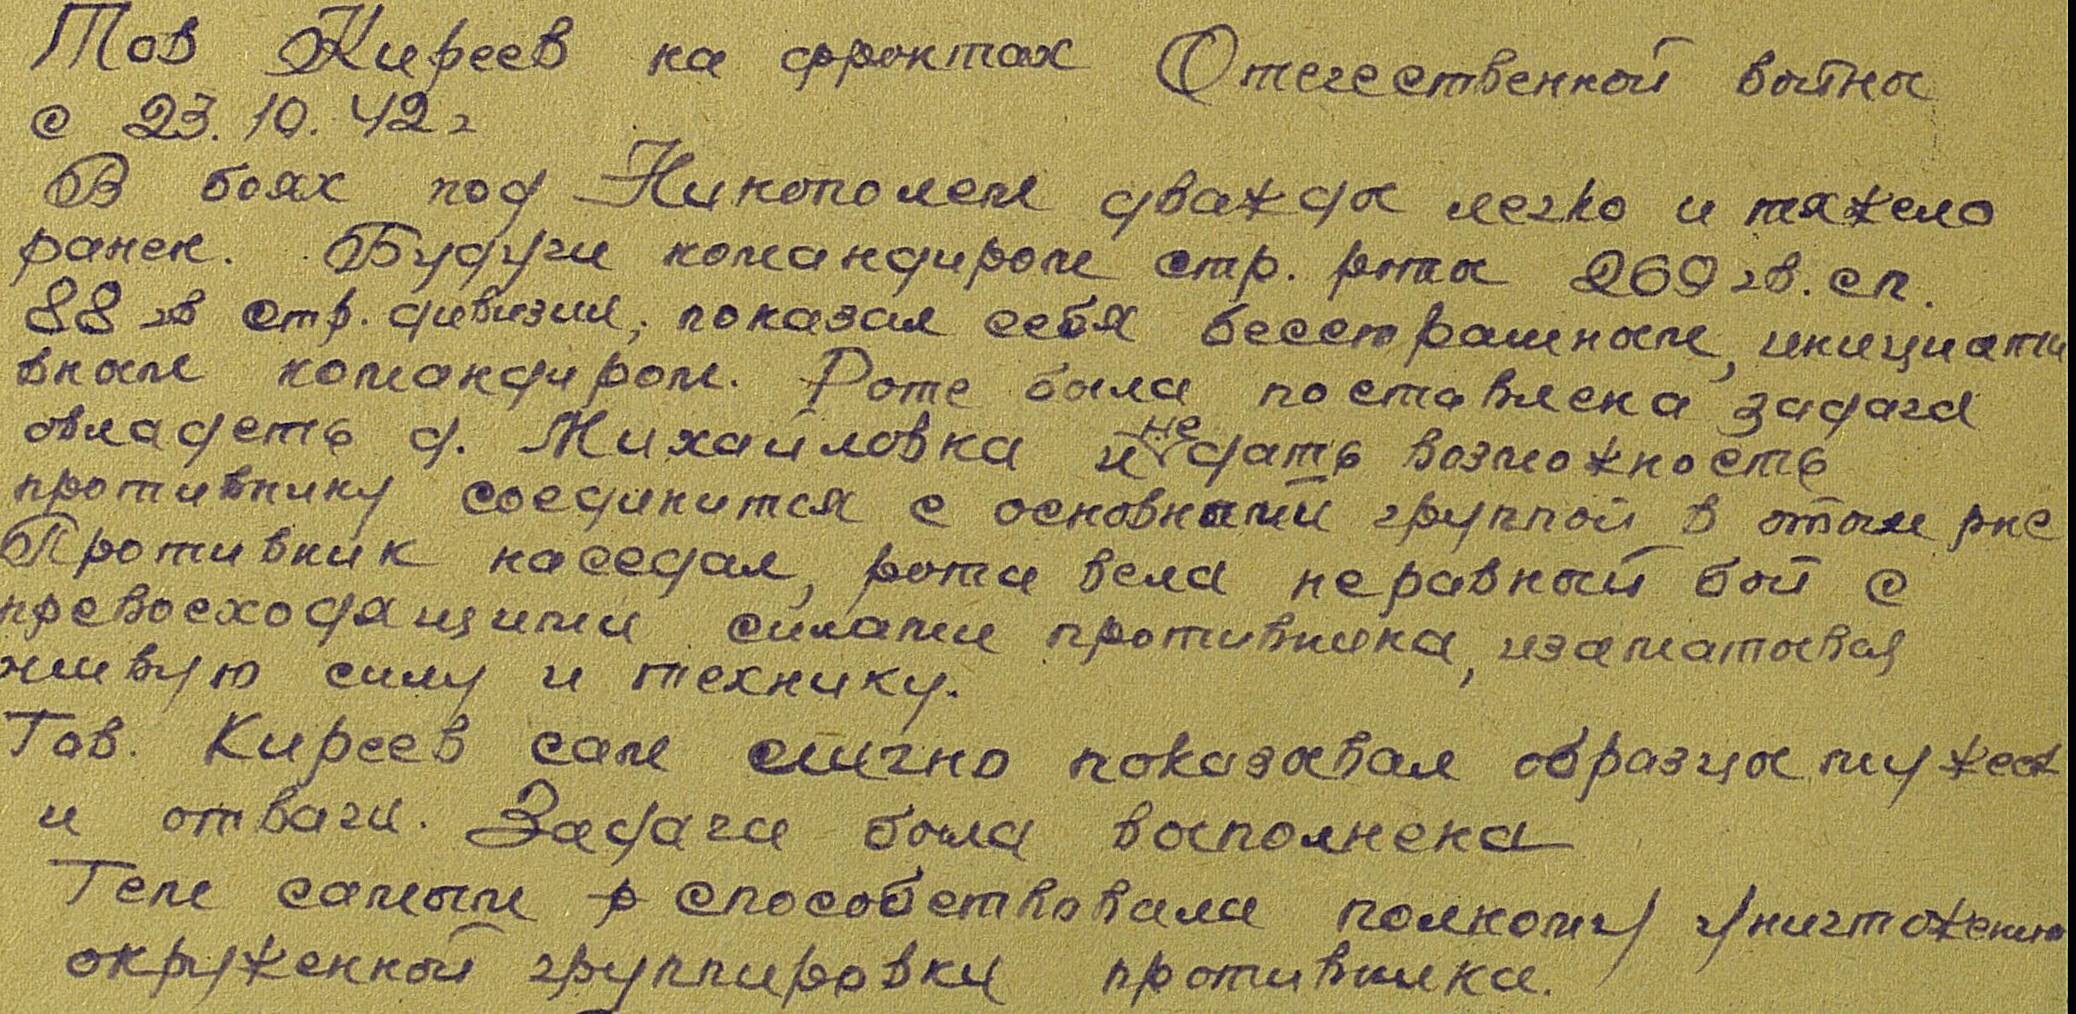 Тов Киреев на фронтах Отечественной войны
с 23.10.42г
В боях под Никополем дважды легко и тяжело
ранен. Будучи командиром стр. роты 269 гв. сп.
88 гв стр. дивизии, показал себя бесстрашным, инициати
вным командиром. Роте была поставлена задача
овладеть д. Михайловка и не дать возможность
противнику соединится с основными группой в этом рне
Противник наседал, рота вела неравный бой с
превосходящими силами противника, изматывая
живую силу и технику.
Тов. Киреев сам лично показывал образцы мужест
и отваги. Задача была выполнена
Тем самым р способствовала полному уничтожению
окруженной группировки противника.